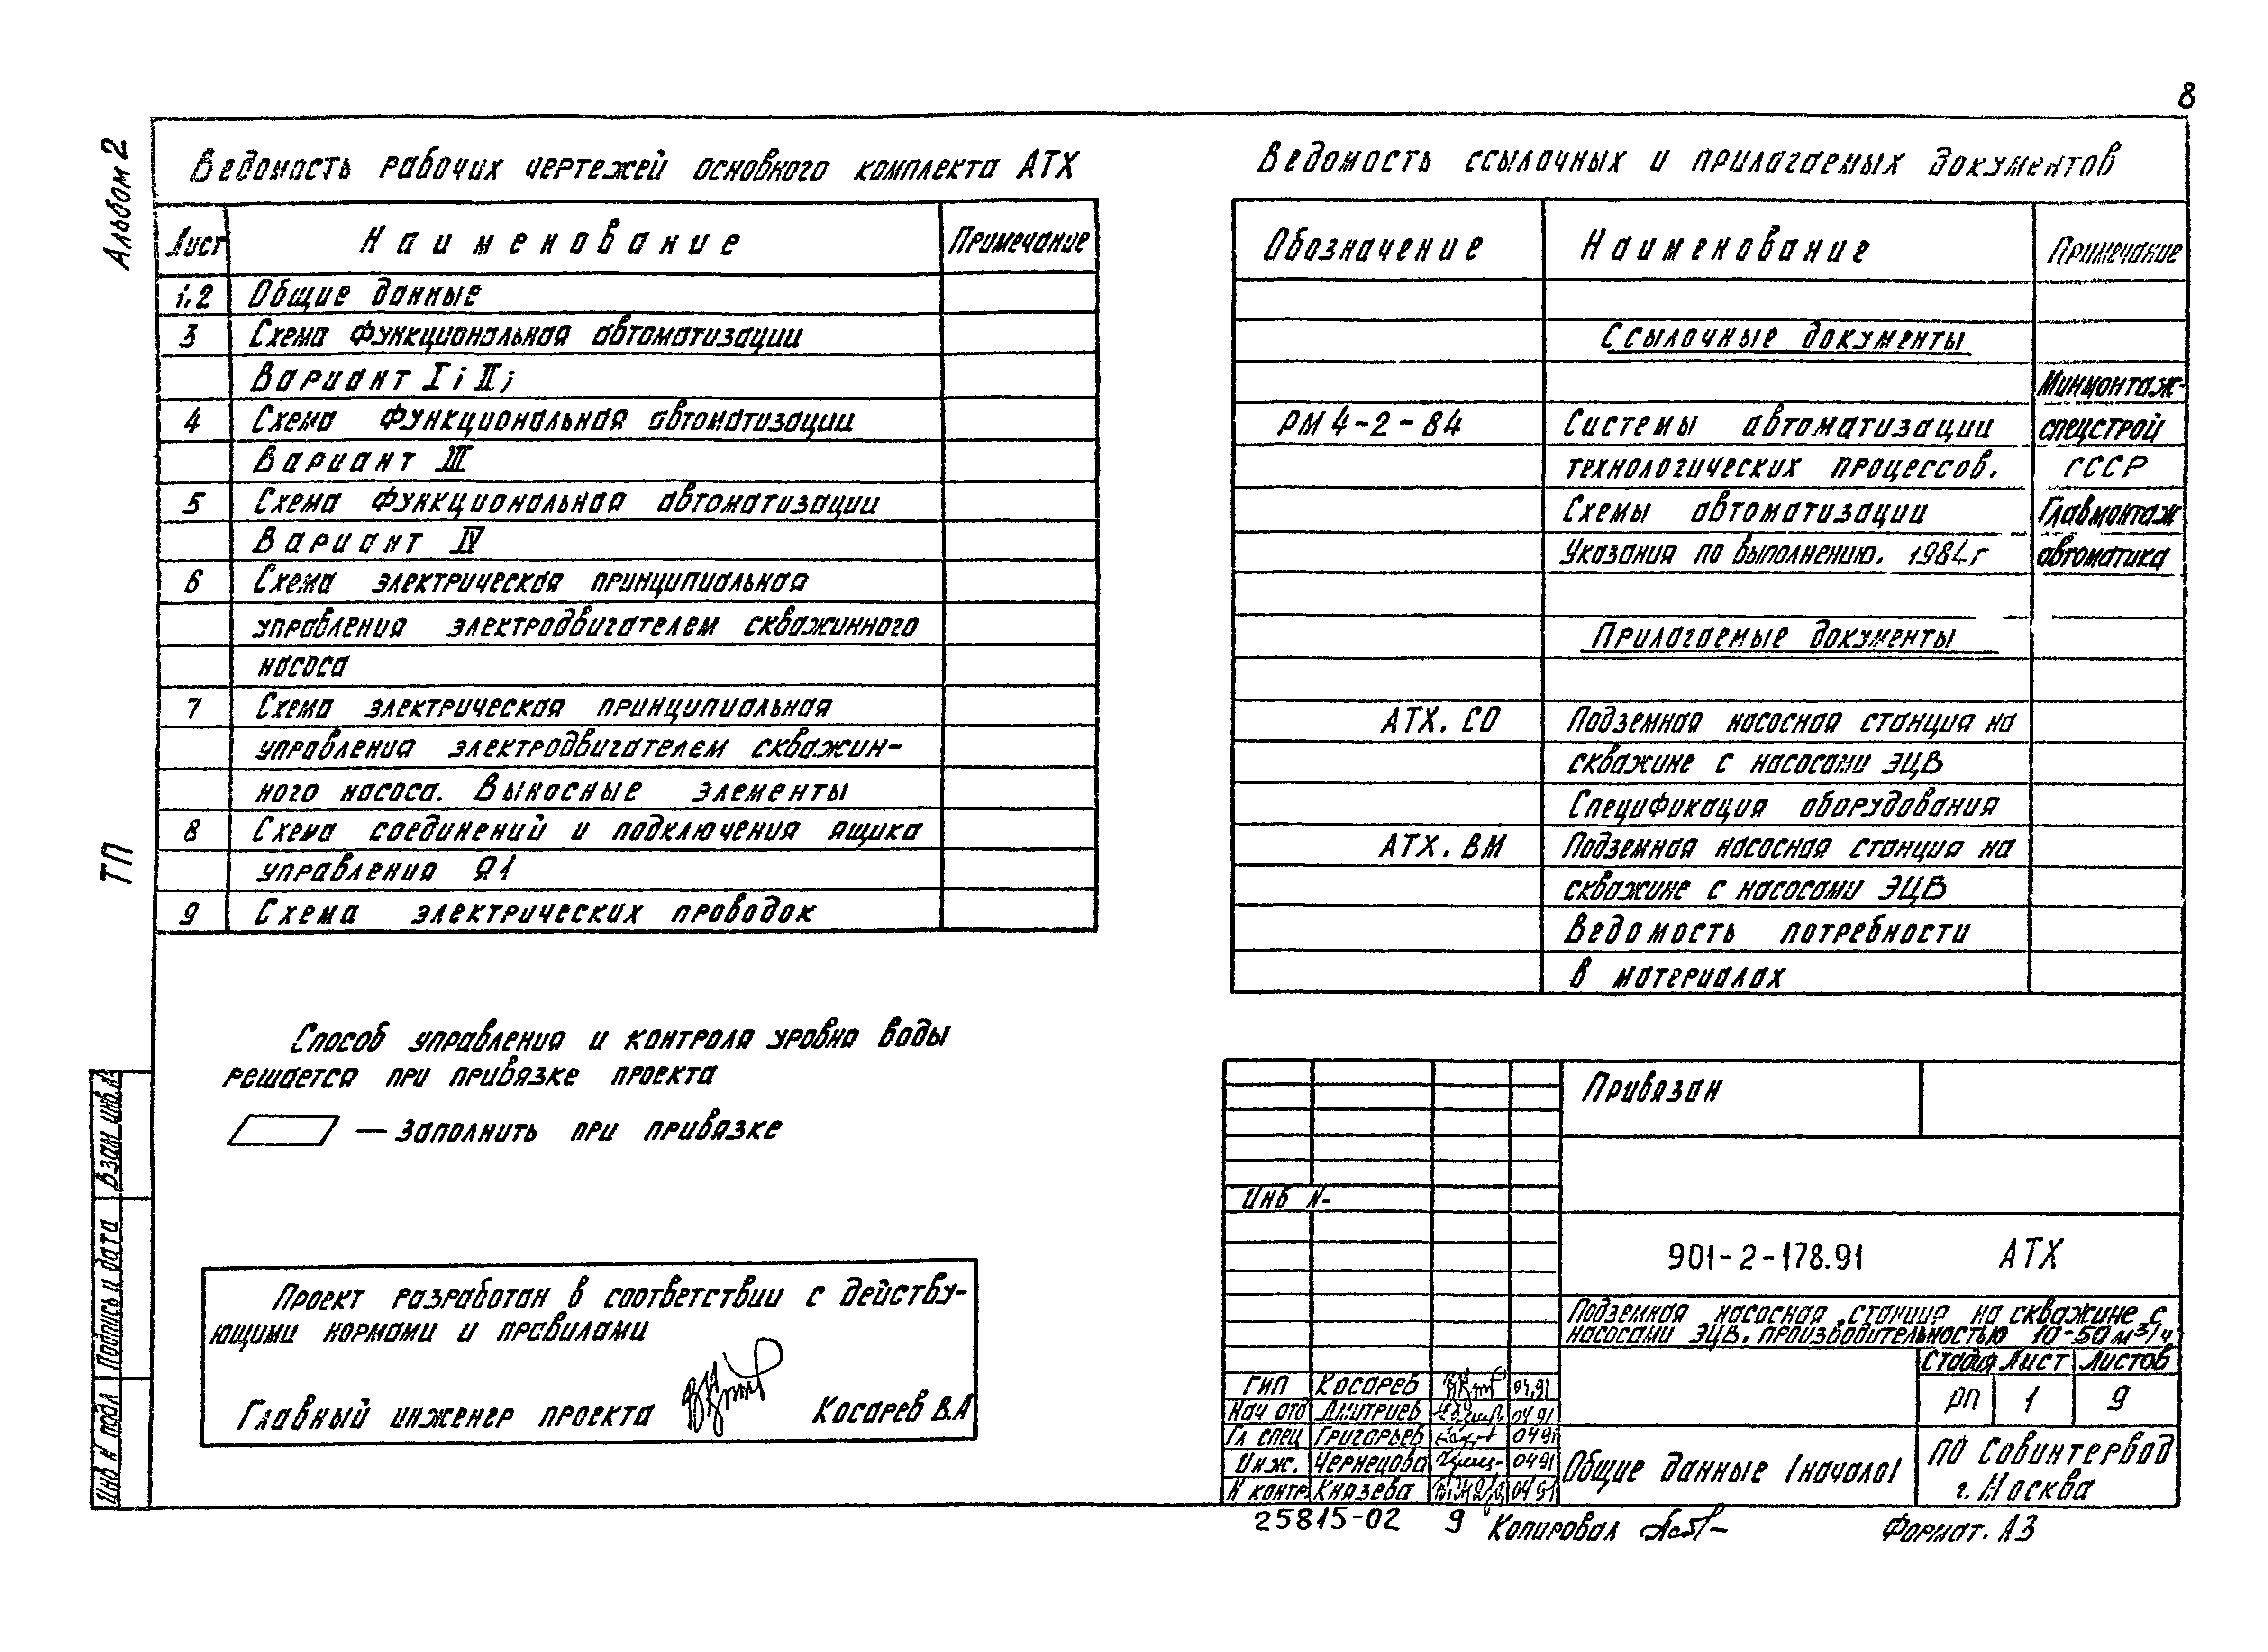 8
Альбом 2
ТП
Ведомость рабочих чертежей основного комплекта АТХ
Лист Наименование Примечание
1.2 Общие данные
3 Схема функциональная автоматизации
Вариант I; II;
4 Схема функциональная автоматизации
Вариант III
5 Схема функциональная автоматизации
Вариант IV
6 Схема электрическая принципиальная
управления электродвигателем скважинного
насоса
7 Схема электрическая принципиальная
управления электродвигателем скважин-
ного насоса. Выносные элементы
8 Схема соединений и подключения ящика
управления Я1
9 Схема электрических проводок
Ведомость ссылочных и прилагаемых документов
Обозначение Наименование Примечание
Ссылочные документы
Минмонтаж-
РМ4-2-84 Системы автоматизации спецстрой
технологических процессов. СССР
Схемы автоматизации Главмонтаж
Указания по выполнению. 1984г автоматика
Прилагаемые документы
АТХ.СО Подземная насосная станция на
скважине с насосами ЭЦВ
Спецификация оборудования
АТХ.ВМ Подземная насосная станция на
скважине с насосами ЭЦВ
Ведомость потребности
в материалах
Способ управления и контроля уровня воды
решается при привязке проекта
— Заполнить при привязке
Проект разработан в соответствии с действу-
ющими нормами и правилами
Главный инженер проекта Косарев В.А
Взам инв. №
Подпись и дата
Инв № подл
Привязан
Инв №
901-2-178.91 АТХ
Подземная насосная станция на скважине с
насосами ЭЦВ, производительностью 10-50м³/ч
Стадия Лист Листов
РП 1 9
ГИП Косарев 04.91
Нач отд Дмитриев 04 91
Гл спец Григорьев 0491
Инж. Чернецова 0491
Н контр. Князева 04 91
Общие данные (начало)
ПО Совинтервод
г. Москва
25815-02 9 Копировал Формат. А3